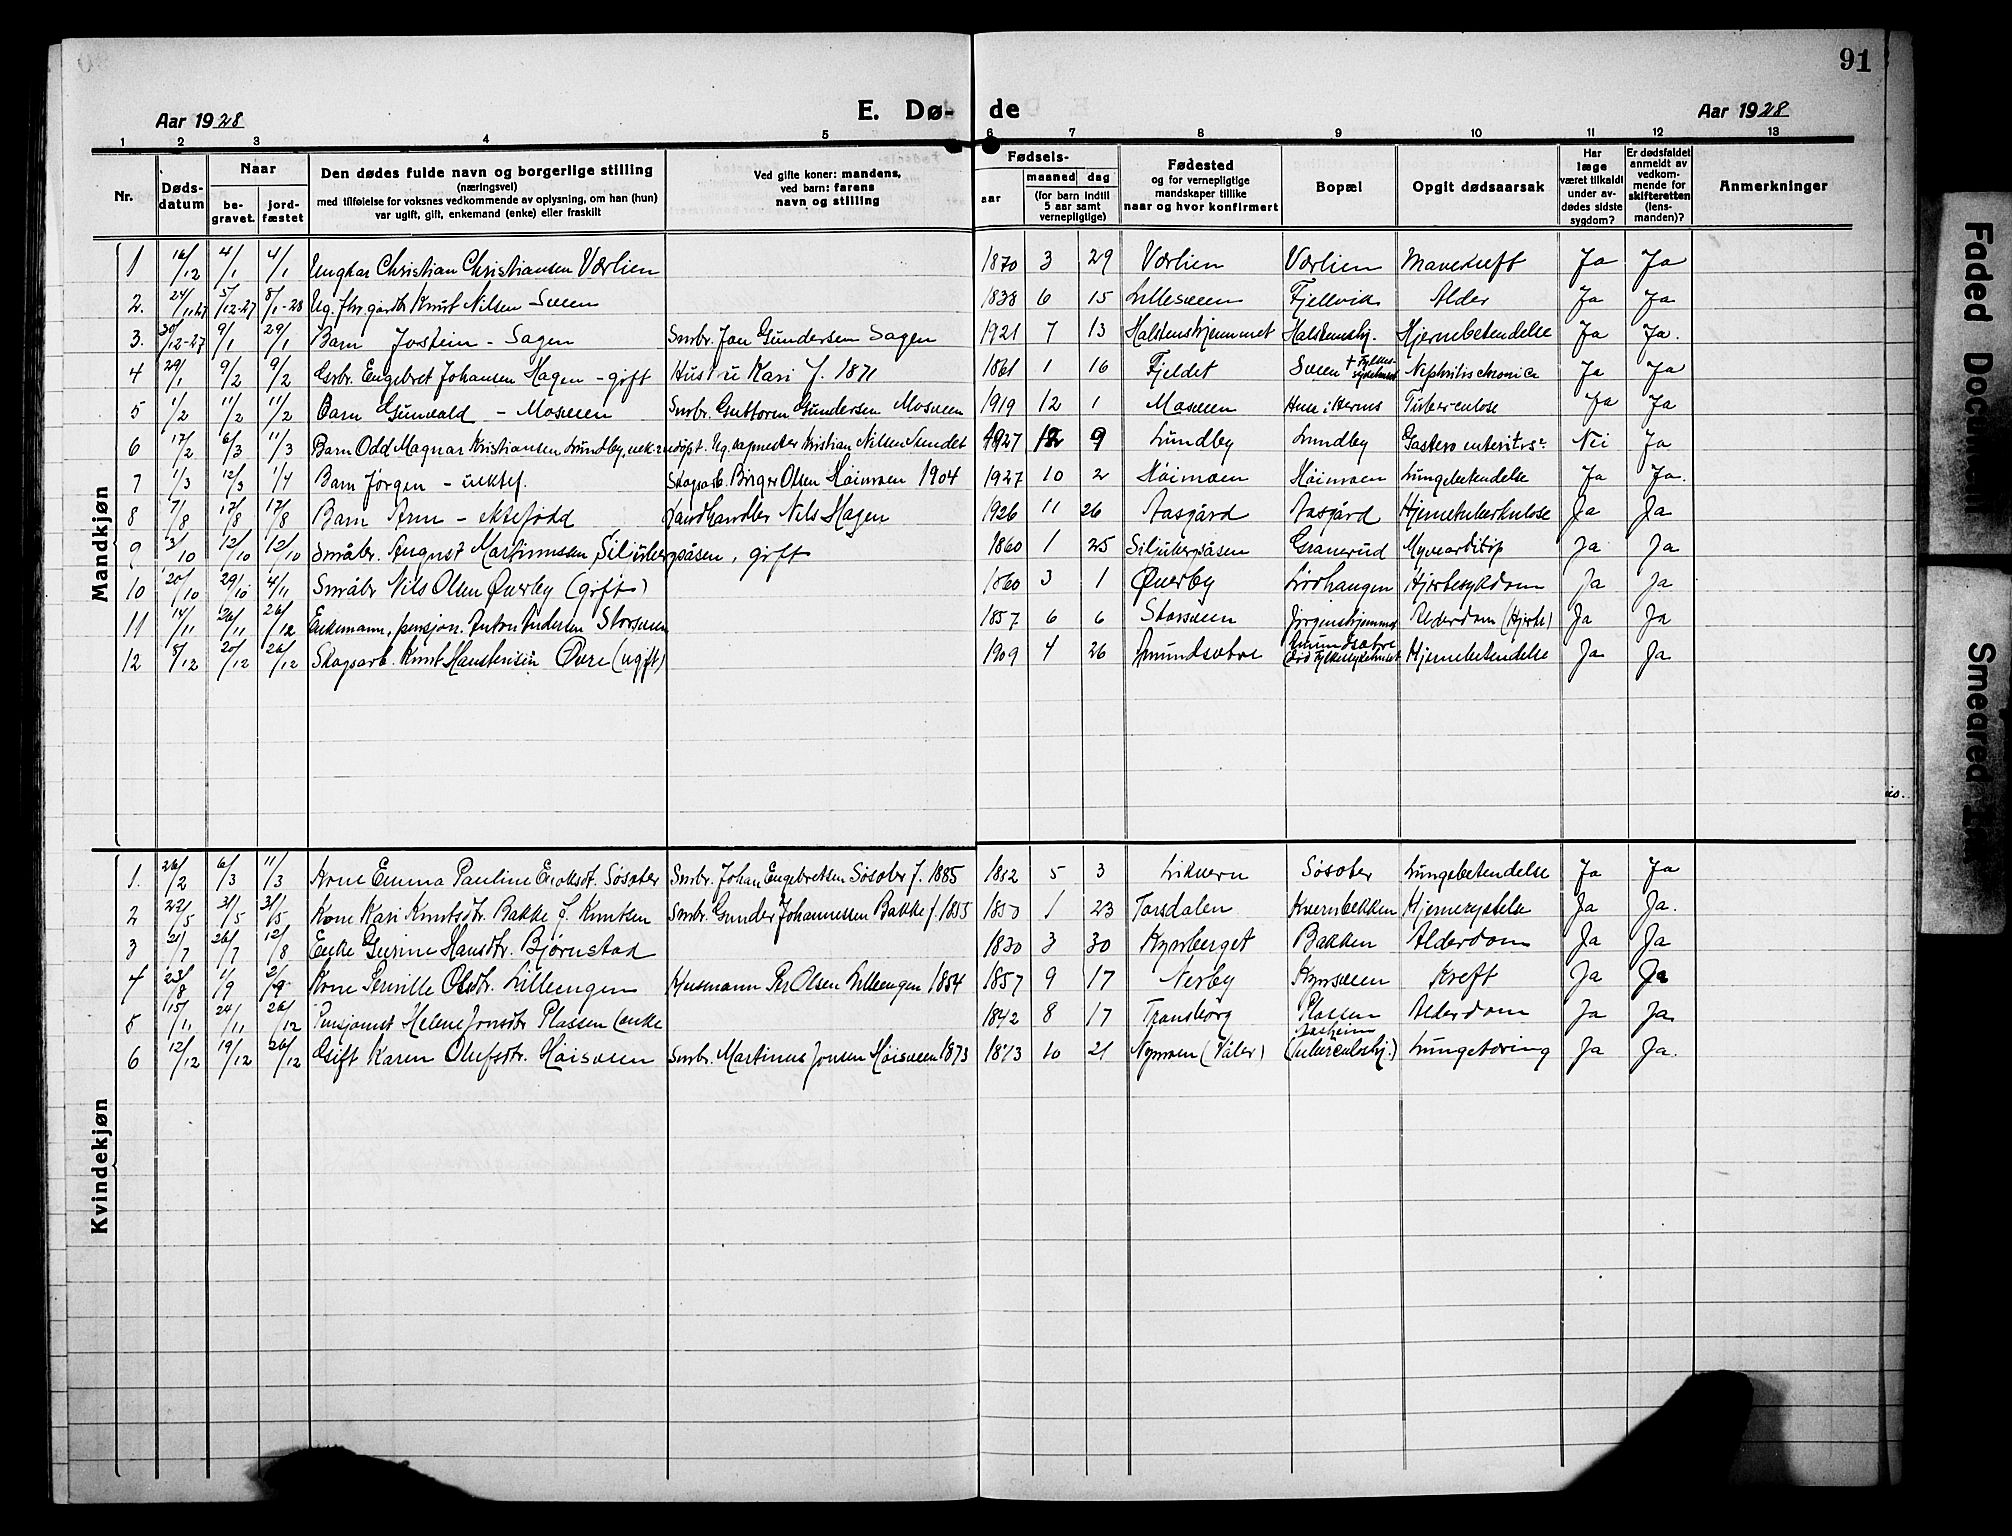 91
Aar 1928 E. Dø- de Aar 1928
1 2 3 4 5 6 7 8 9 10 11 12 13
Nr. Døds-datum Naar be-gravet. jord-fæstet Den dødes fulde navn og borgerlige stilling (næringsvei) med tilføielse for voksnes vedkommende av oplysning, om han (hun) var ugift, gift, enkemand (enke) eller fraskilt Ved gifte koner: mandens, ved barn: farens navn og stilling Fødsels- aar maaned dag (for barn indtil 5 aar samt vernepligtige) Fødested og for vernepligtige mandskaper tillike naar og hvor konfirmert Bopæl Opgit dødsaarsak Har læge været tilkaldt under av-dødes sidste sygdom? Er dødsfaldet anmeldt av vedkom-mende for skifteretten (lens-manden)? Anmerkninger
Mandkjøn
1 16/12 4/1 4/1 Ungkar Christian Christiansen Værlien 1870 3 29 Værlien Værlien Mavekreft Ja Ja
2. 24/11.27 5/12-27 8/1-28 Ug. fhv. gårdbr Knut Nilsen Sveen 1838 6 15 Lillesveen Fjellvik Alder Ja Ja
3. 30/12-27 9/1 29/1 Barn Jostein - Sagen Smbr. Jon Gundersen Sagen 1921 7 13 Halstenshjemmet Halstenshj. Hjernebetendelse Ja Ja.
4 29/1 9/2 9/2 Gsbr. Engebret Johansen Hagen - gift Hustru Kari f. 1871 1861 1 16 Fjeldet Sveen + Fylkessykehuset Nephritis chronica Ja Ja
5 1/2 11/2 11/2 Barn Gunvald - Mosveen Smbr. Guttorm Gundersen Mosveen 1919 12 1 Mosveen Huse i Hernes Tuberculose Ja Ja
6 17/2 6/3 11/3 Barn Odd Magnar Kristiansen Lundby, uekte døpt. Ug. sagmester Kristian Nilsen Sundet 1927 12 9 Lundby Lundby Gastero enteritis Nei Ja
7 1/3 12/3 1/4 Barn Jørgen - uektef. Skogsarb. Birger Olsen Høimoen 1904 1927 10 2 Høimoen Høimoen Lungebetendelse Ja Ja.
8 7/8 17/8 17/8 Barn Arne - ektefødd Landhandler Nils Hagen 1926 11 26 Aasgård Aasgård Hjernetuberkulose Ja Ja
9 3/10 12/10 12/10 Småbr. August Martinussen Siljubergsåsen, gift 1860 1 25 Siljubergsåsen Granerud Ja Ja
10 20/10 29/10 4/11 Småbr Nils Olsen Øverby (gift) 1860 3 1 Øverby Lødhaugen Hjertesykdom Ja Ja
11 14/11 26/11 26/12 Enkemann, pensjon. Anton Andersen Storsveen 1857 6 6 Storsveen Jørgenshjemmet Alderdom (Hjerte) Ja Ja
12 8/12 20/12 26/12 Skogsarb. Knut Haustensen Øvre (ugift) 1909 4 26 Amundsætre Amundsætre død Fylkessykehuset Hjernebetendelse Ja Ja
Kvindekjøn
1. 26/2 6/3 11/3 Kone Emma Pauline Eriksdt. Søsæter Smbr. Johan Engebretsen Søsæter f. 1885 1882 5 3 Likvern Søsæter Lungebetendelse Ja Ja
2 22/5 31/5 31/5 Kone Kari Knutsdtr. Bakke f. Knutsen Smbr. Gunder Johannessen Bakke f. 1855 1850 1 23 Torsdalen Kvernbekken Hjernerystelse Ja Ja.
3 21/7 26/7 12/8 Enke Gurine Hansdtr. Bjørnstad 1830 3 30 Kynberget Bakken Alderdom Ja Ja
4 23/8 1/9 2/9 Kone Pernille Olsdtr. Lilleengen Husmann Per Olsen Lilleengen 1854 1857 9 17 Nerby Kynsveen Kreft Ja Ja
5 15/11 24/11 26/12 Pensjonist Helene Jonsdtr Plassen (enke 1842 8 17 Transborg Plassen Alderdom Ja Ja
6 12/12 19/12 26/12 Gift Karen Olufsdtr. Høisveen Smbr. Martinus Jonsen Høisveen 1873 1873 10 21 Nymoen (Våler) Solheim (Tuberculoshj.) Lungetæring Ja Ja.
Faded Document
Smeared